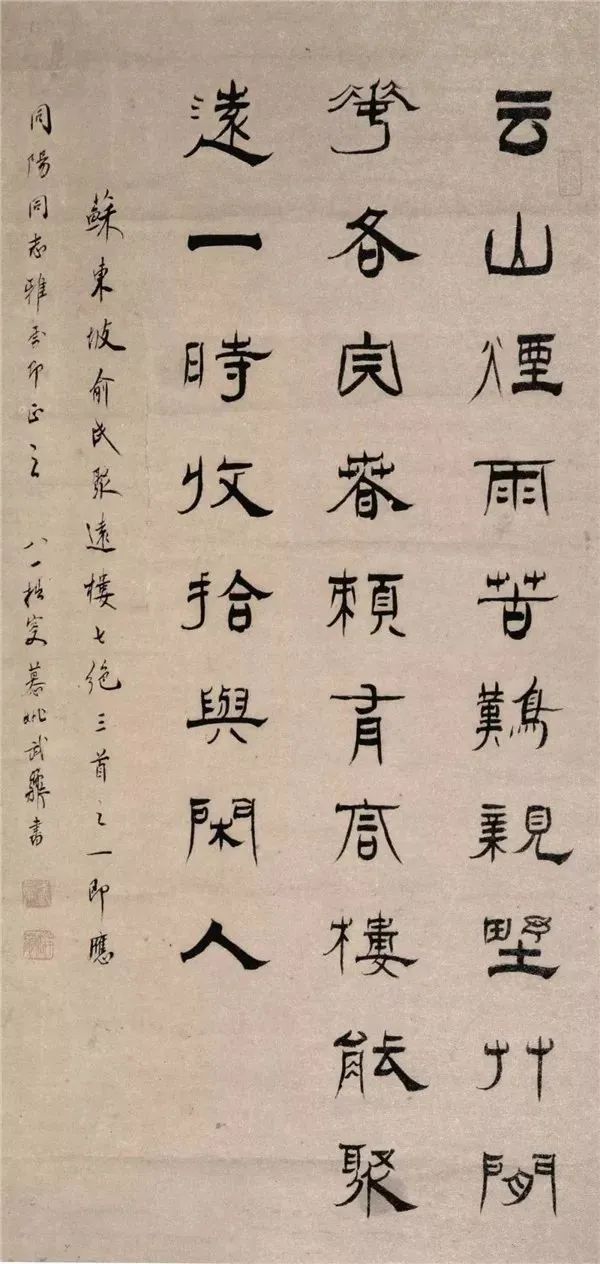 云山煙雨苦難親野艸閒
華各自春賴有高樓能聚
遠一時收拾與閑人
蘇東坡俞氏聚遠樓七絕三首之一即應
同陽同志雅即正之 八一拙叟慕姚武書